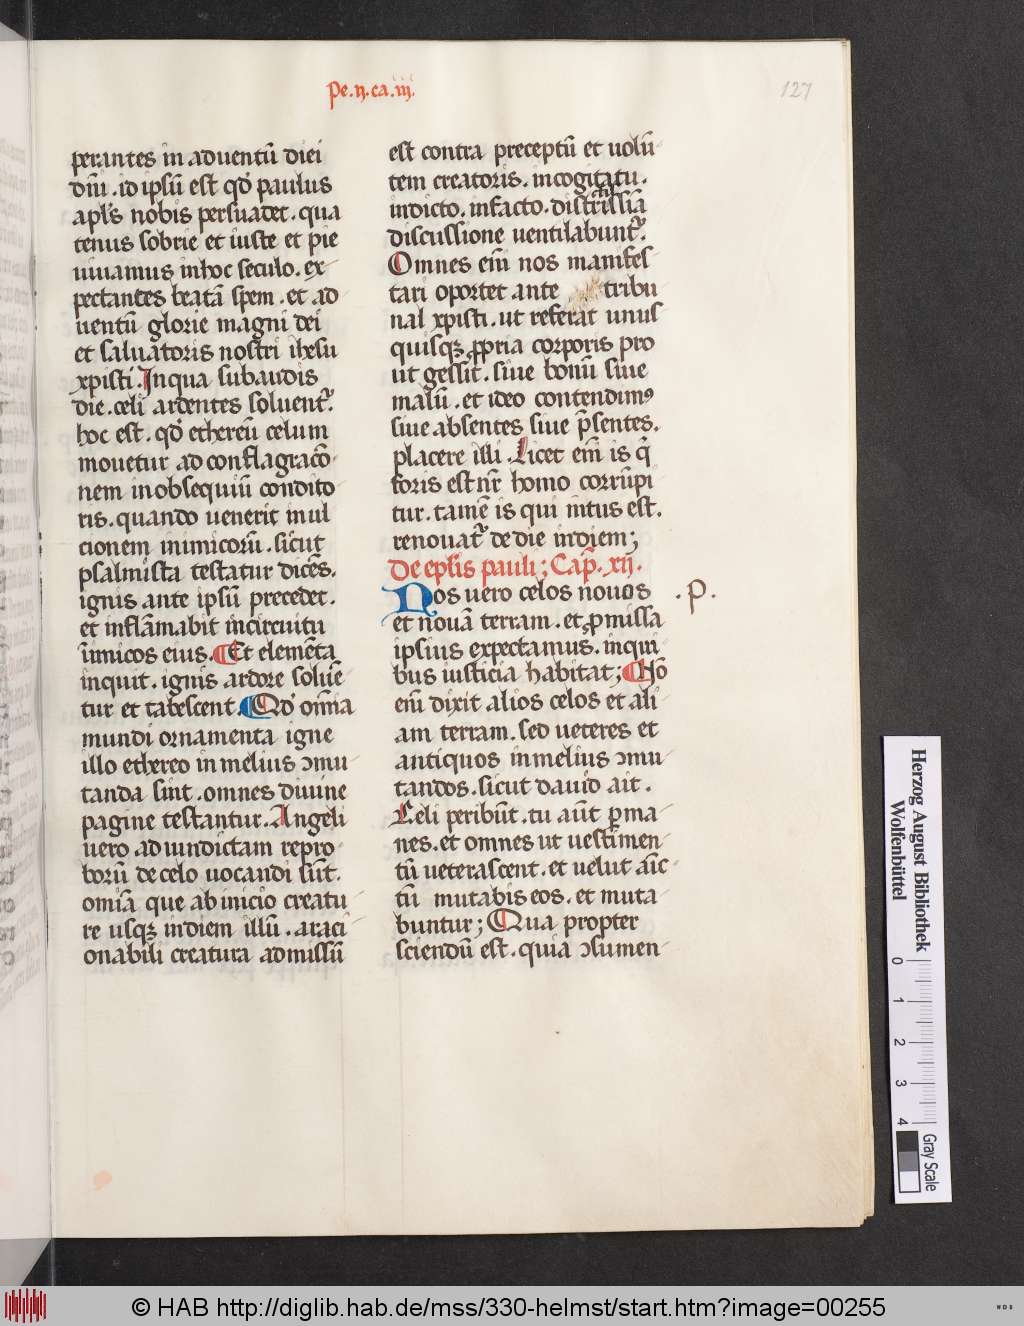 Pe.ıȷ.ca.iiȷ.
127
perantes in aduentū diei
dn̄i .id ipsū est qd̓ paulus
apl̓s nobis persuadet. qua
tenus sobrie et iuste et pie
uiuamus inhoc seculo. ex-
pectantes beatā spem . et ad
uentū glorie magni dei
et saluatoris nostri ihesu
xpisti. Inqua subaudis
die. celi ardentes soluent᷑.
hoc est. qd̓ ethereū celum
mouetur ad conflagracō-
nem in obsequiū condito
ris. quando uenerit mul
cionem inimicorū . sicut
psalmista testatur dicēs.
ignis ante ipsū precedet.
et inflāmabit incircuitu
īimicos eius. Et elemēta
inquit. ignis ardore soluē
tur et tabescent. Qd̓ om̄ia
mundi ornamenta igne
illo ethereo in melius ↄmu
tanda sint . omnes diuine
pagine testantur. Angeli
uero ad uindictam repro-
borū de celo uocandi sūt.
omīa que ab inicio creatu
re usqꝫ indiem illū . araci
onabili creatura admissū
est contra preceptū et uolū
tem creatoris. incogitatu.
indicto. infacto. districtissīa
discussione uentilabunt᷑.
Omnes em̄ nos manifes
tari oportet ante tribu
nal xpisti. ut referat unus
quisqꝫ ꝓpria corporis pro
ut gessit. siue bonū siue
malū . et ideo contendimꝰ
siue absentes siue p̄sentes.
placere illi . Licet em̄ is q̄
foris est nr̄ homo corrūpi
tur. tamē is qui intus est.
renouat᷑ de die indiem;
De ep̄lis pauli; Cap̄. xiȷ.
Nos uero celos nouos
.p.
et nouā terram. et ꝓmissa
ipsius expectamus. inqui
bus iusticia habitat; Nō
em̄ dixit alios celos et ali
am terram. sed ueteres et
antiquos inmelius ↄmu
tandos. sicut dauid ait.
Celi peribūt. tu aūt p̄ma
nes. et omnes ut uestimen
tū ueterascent. et uelut am̄ic
tū mutabis eos. et muta
buntur; Qua propter
sciendū est. quia ↄsumen
Herzog August Bibliothek
Wolfenbüttel
0 1 2 3 4
Gray Scale
© HAB http://diglib.hab.de/mss/330-helmst/start.htm?image=00255